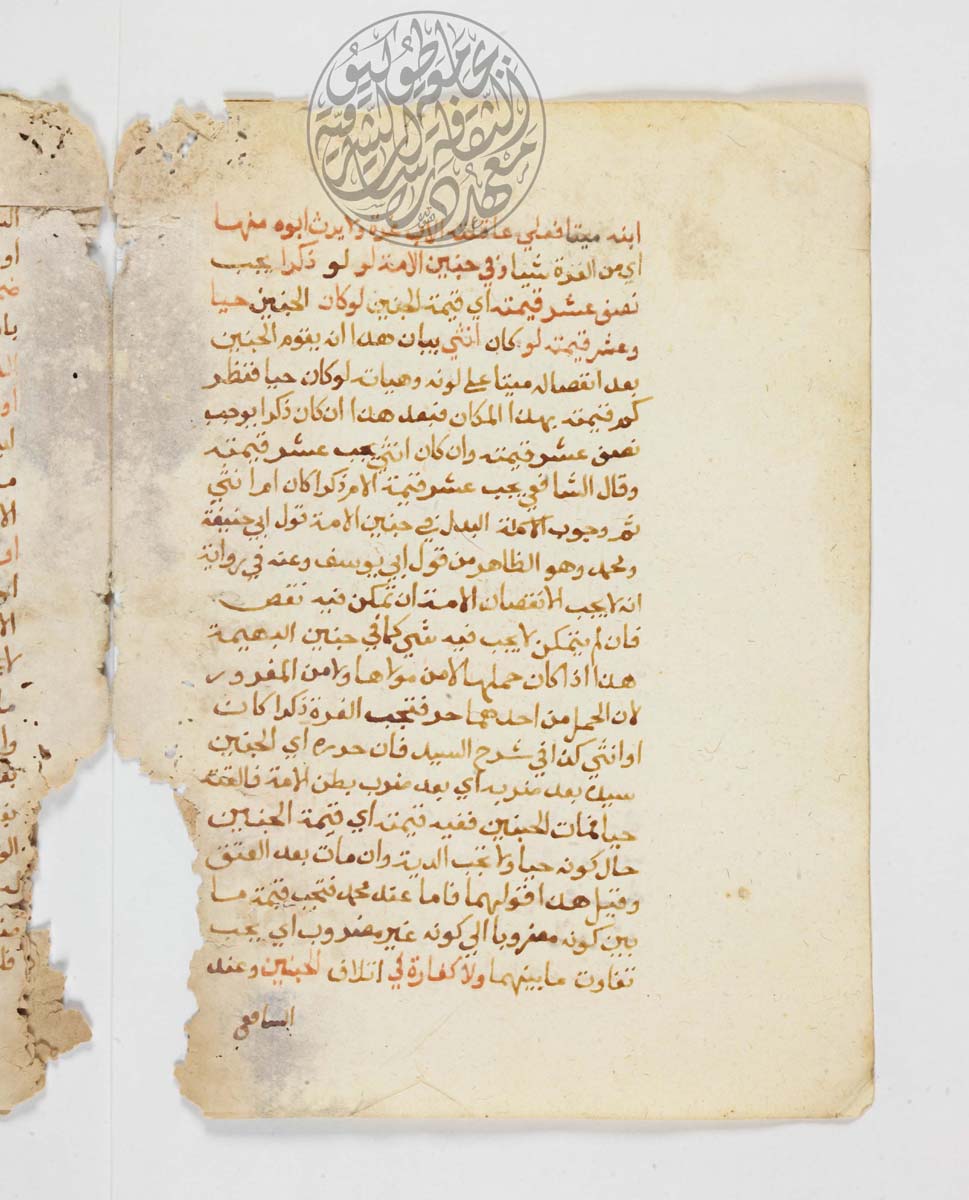 ابنه ميتا فعلي عاقلته الاب غرة ولا يرث ابوه منها
اي من الغرة شيا وفي جنين الامة لو لو ذكرا يجب
نصف عشر قيمته اي قيمة الجنين لو كان الجنين حيا
وعشر قيمته لو كان انثي بيان هذا انه يقوم الجنين
بعد انفصاله ميتا علي لونه وهياته لو كان حيا فننظر
كم قيمته بهذا المكان فبعد هذا ان كان ذكرا يوجب
نصف عشر قيمته وان كان انثي يجب عشر قيمته
وقال الشافعي يجب عشر قيمة الام ذكرا كان ام انثي
ثم وجوب البدل في جنين الامة قول ابي حنيفة
ومحمد وهو الظاهر من قول ابي يوسف وعنه في رواية
انه لا يجب الا نقصان الامة ان تمكن فيه نقص
فان لم يتمكن لا يجب فيه شي كما في جنين البهيمة
هذا اذا كان حملها لا من مولاها ولا من المغرور
لان الحمل من احدهما حر فتجب الغرة ذكرا كان
او انثي كذا في شرح السيد فان حرره اي الجنين
سيده بعد ضربه اي بعد ضرب بطن الامة فالقته
حيا فمات الجنين ففيه قيمته اي قيمة الجنين
حال كونه حيا ولا تجب الدية وان مات بعد العتق
وقيل هذا قولهما فاما عند محمد فتجب قيمة ما
بين كونه مضروبا الي كونه غير مضروب اي يجب
تفاوت ما بينهما ولا كفارة في اتلاف الجنين وعند
الشافعي